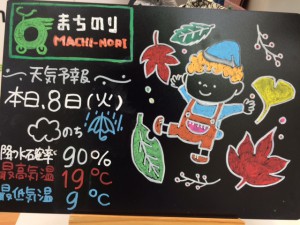 まちのり
MACHI-NORI
天気予報
本日、8日(火)
のち
降水確率 90%
最高気温 19℃
最低気温 9℃